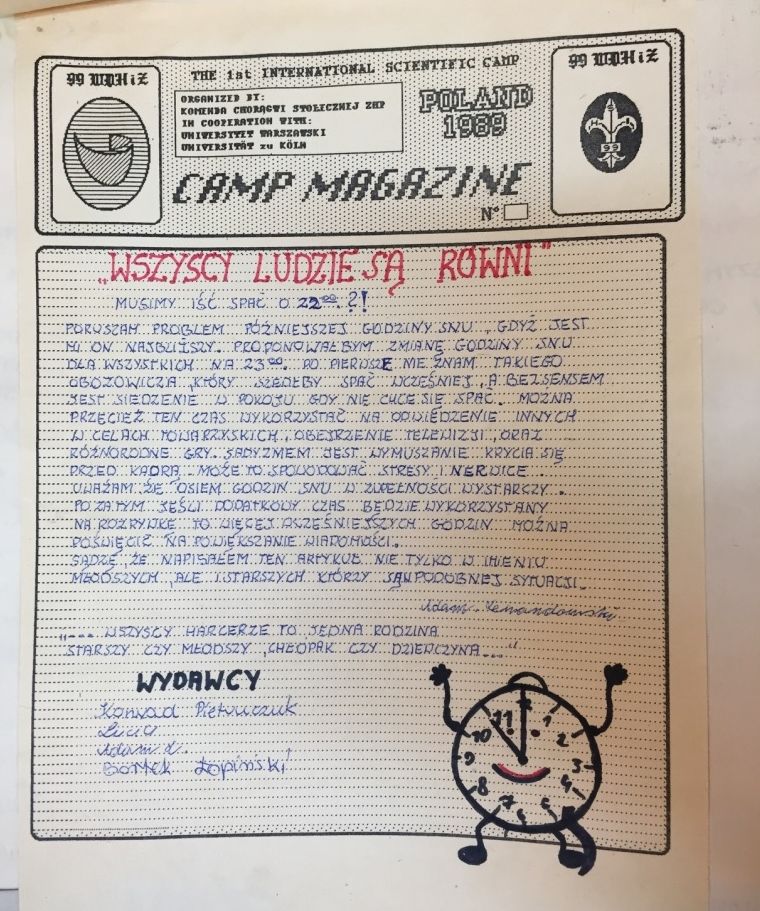 99 WDHiZ
THE 1st INTERNATIONAL SCIENTIFIC CAMP
99 WDHiZ
ORGANIZED BY:
KOMENDA CHORĄGWI STOŁECZNEJ ZHP
IN COOPERATION WITH:
UNIWERSYTET WARSZAWSKI
UNIVERSITÄT zu KÖLN
POLAND
1989
99
CAMP MAGAZINE
N°
„WSZYSCY LUDZIE SĄ RÓWNI"
MUSIMY IŚĆ SPAĆ O 22⁰⁰.?!
PORUSZAM PROBLEM PÓŹNIEJSZEJ GODZINY SNU, GDYŻ JEST
MI ON NAJBLIŻSZY. PROPONOWAŁBYM ZMIANĘ GODZINY SNU
DLA WSZYSTKICH NA 23⁰⁰. PO PIERWSZE NIE ZNAM TAKIEGO
OBOZOWICZA, KTÓRY SZEDŁBY SPAĆ WCZEŚNIEJ, A BEZSENSEM
JEST SIEDZENIE W POKOJU GDY NIE CHCE SIĘ SPAĆ. MOŻNA
PRZECIEŻ TEN CZAS WYKORZYSTAĆ NA ODWIEDZENIE INNYCH
W CELACH TOWARZYSKICH, OBEJRZENIE TELEWIZJI, ORAZ
RÓŻNORODNE GRY. SADYZMEM JEST WYMUSZANIE KRYCIA SIĘ
PRZED KADRĄ. MOŻE TO SPOWODOWAĆ STRESY I NERWICE.
UWAŻAM, ŻE OSIEM GODZIN SNU W ZUPEŁNOŚCI WYSTARCZY.
POZATYM JEŚLI DODATKOWY CZAS BĘDZIE WYKORZYSTANY
NA ROZRYWKĘ TO WIĘCEJ WCZEŚNIEJSZYCH GODZIN MOŻNA
POŚWIĘCIĆ NA POWIĘKSZANIE WIADOMOŚCI.
SĄDZĘ, ŻE NAPISAŁEM TEN ARTYKUŁ NIE TYLKO W IMIENIU
MŁODSZYCH, ALE I STARSZYCH KTÓRZY SĄ W PODOBNEJ SYTUACJI.
Adam Lewandowski
„--- WSZYSCY HARCERZE TO JEDNA RODZINA
STARSZY CZY MŁODSZY, CHŁOPAK CZY DZIEWCZYNA..."
WYDAWCY
Konrad Pietruczuk
Adam L.
Bartek Łopiński!
11 1
10 2
9 3
8 4
7 6 5